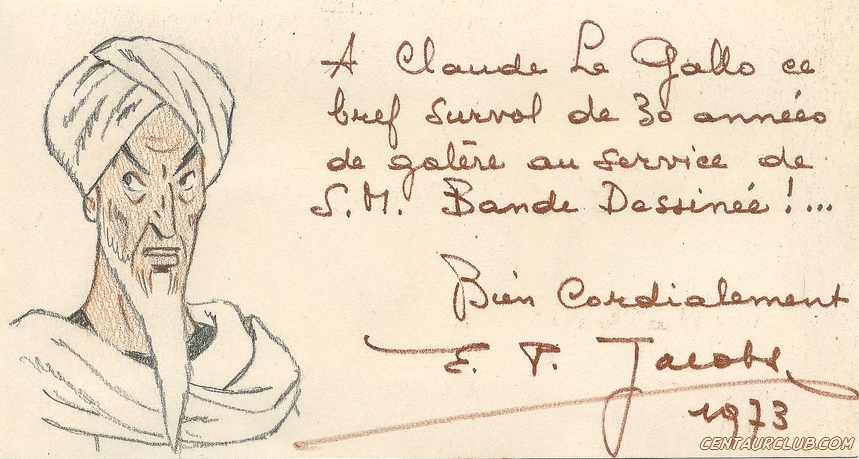 A Claude Le Gallo ce
bref survol de 30 années
de galère au service de
S.M. Bande Dessinée !...
Bien Cordialement
E. P. Jacobs
1973
CENTAURCLUB.COM